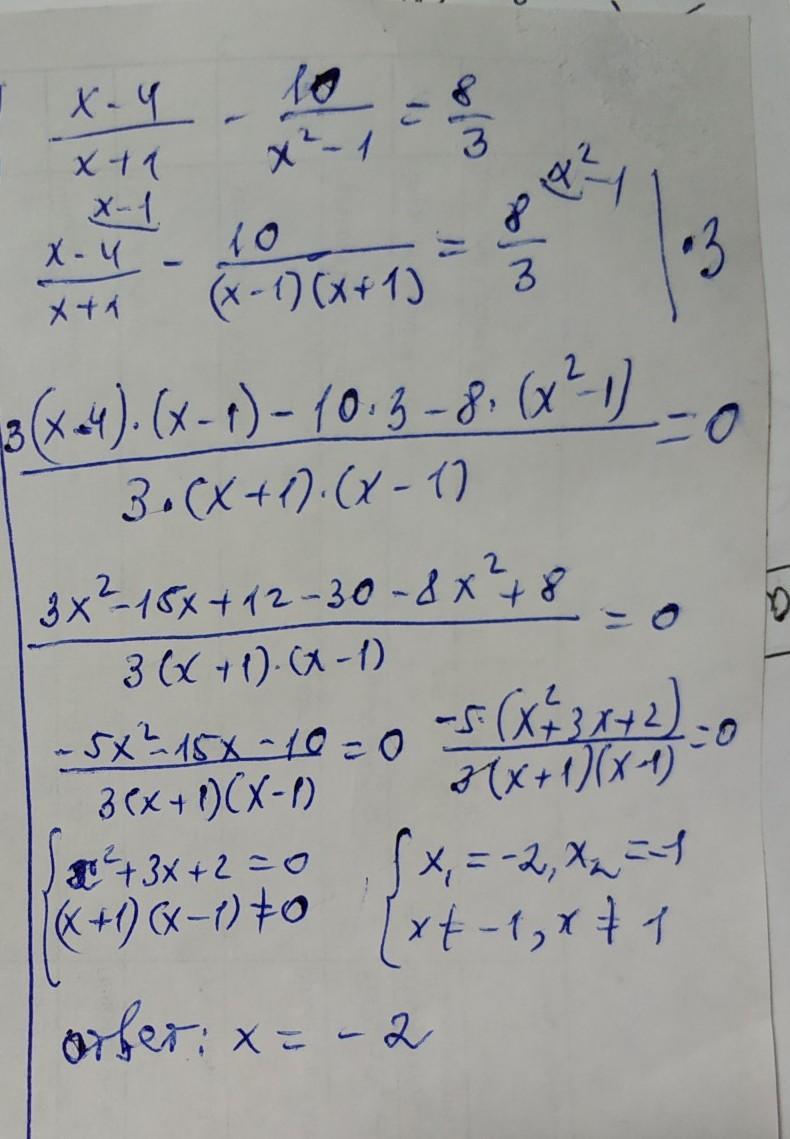 (x-4)/(x+1) - 10/(x²-1) = 8/3
x-1 x²-1
(x-4)/(x+1) - 10/((x-1)(x+1)) = 8/3 | ·3
(3(x-4)·(x-1) - 10·3 - 8·(x²-1))/(3·(x+1)·(x-1)) = 0
(3x²-15x+12-30-8x²+8)/(3(x+1)·(x-1)) = 0
(-5x²-15x-10)/(3(x+1)(x-1)) = 0 (-5·(x²+3x+2))/(3(x+1)(x-1)) = 0
{ x²+3x+2=0 { x₁=-2, x₂=-1
(x+1)(x-1)≠0 x≠-1, x≠1
ответ: x = -2